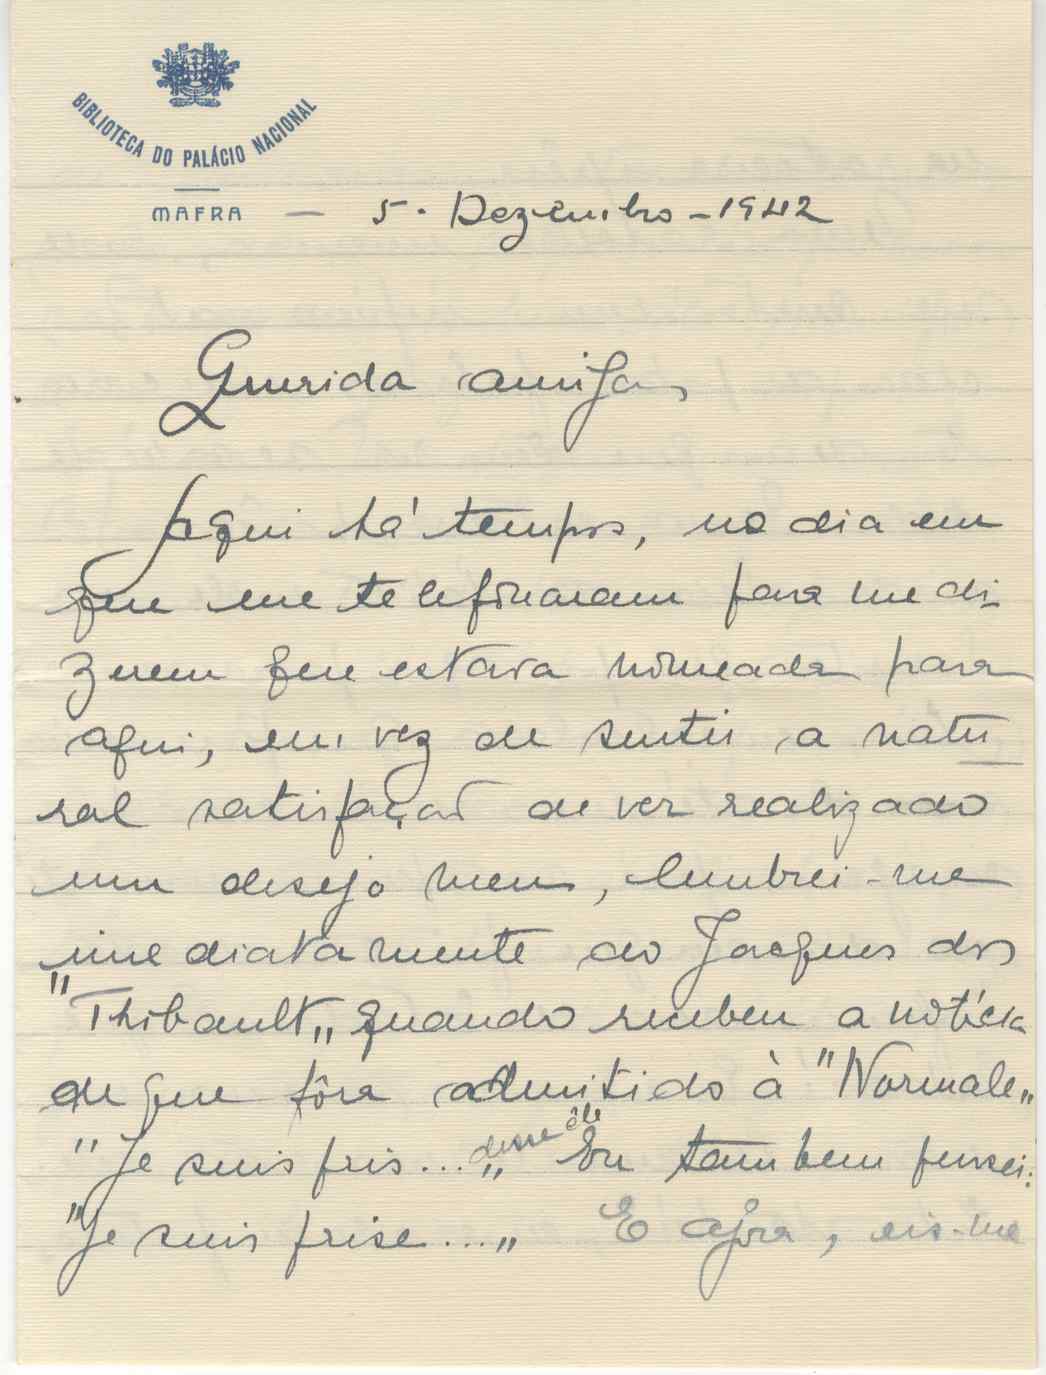 BIBLIOTECA DO PALÁCIO NACIONAL
MAFRA — 5. Dezembro - 1942
Querida amiga,
Aqui há tempos, no dia em
que me telefonaram para me di-
zerem que estava nomeada para
aqui, em vez de sentir a natu
ral satisfação de ver realizado
um desejo meu, lembrei-me
imediatamente do Jacques dos
"Thibault„ quando recebeu a notícia
de que fôra admitido à "Normale„
"Je suis pris...„ disse êle Eu tambem pensei:
"Je suis prise...„ E agora, eis-me